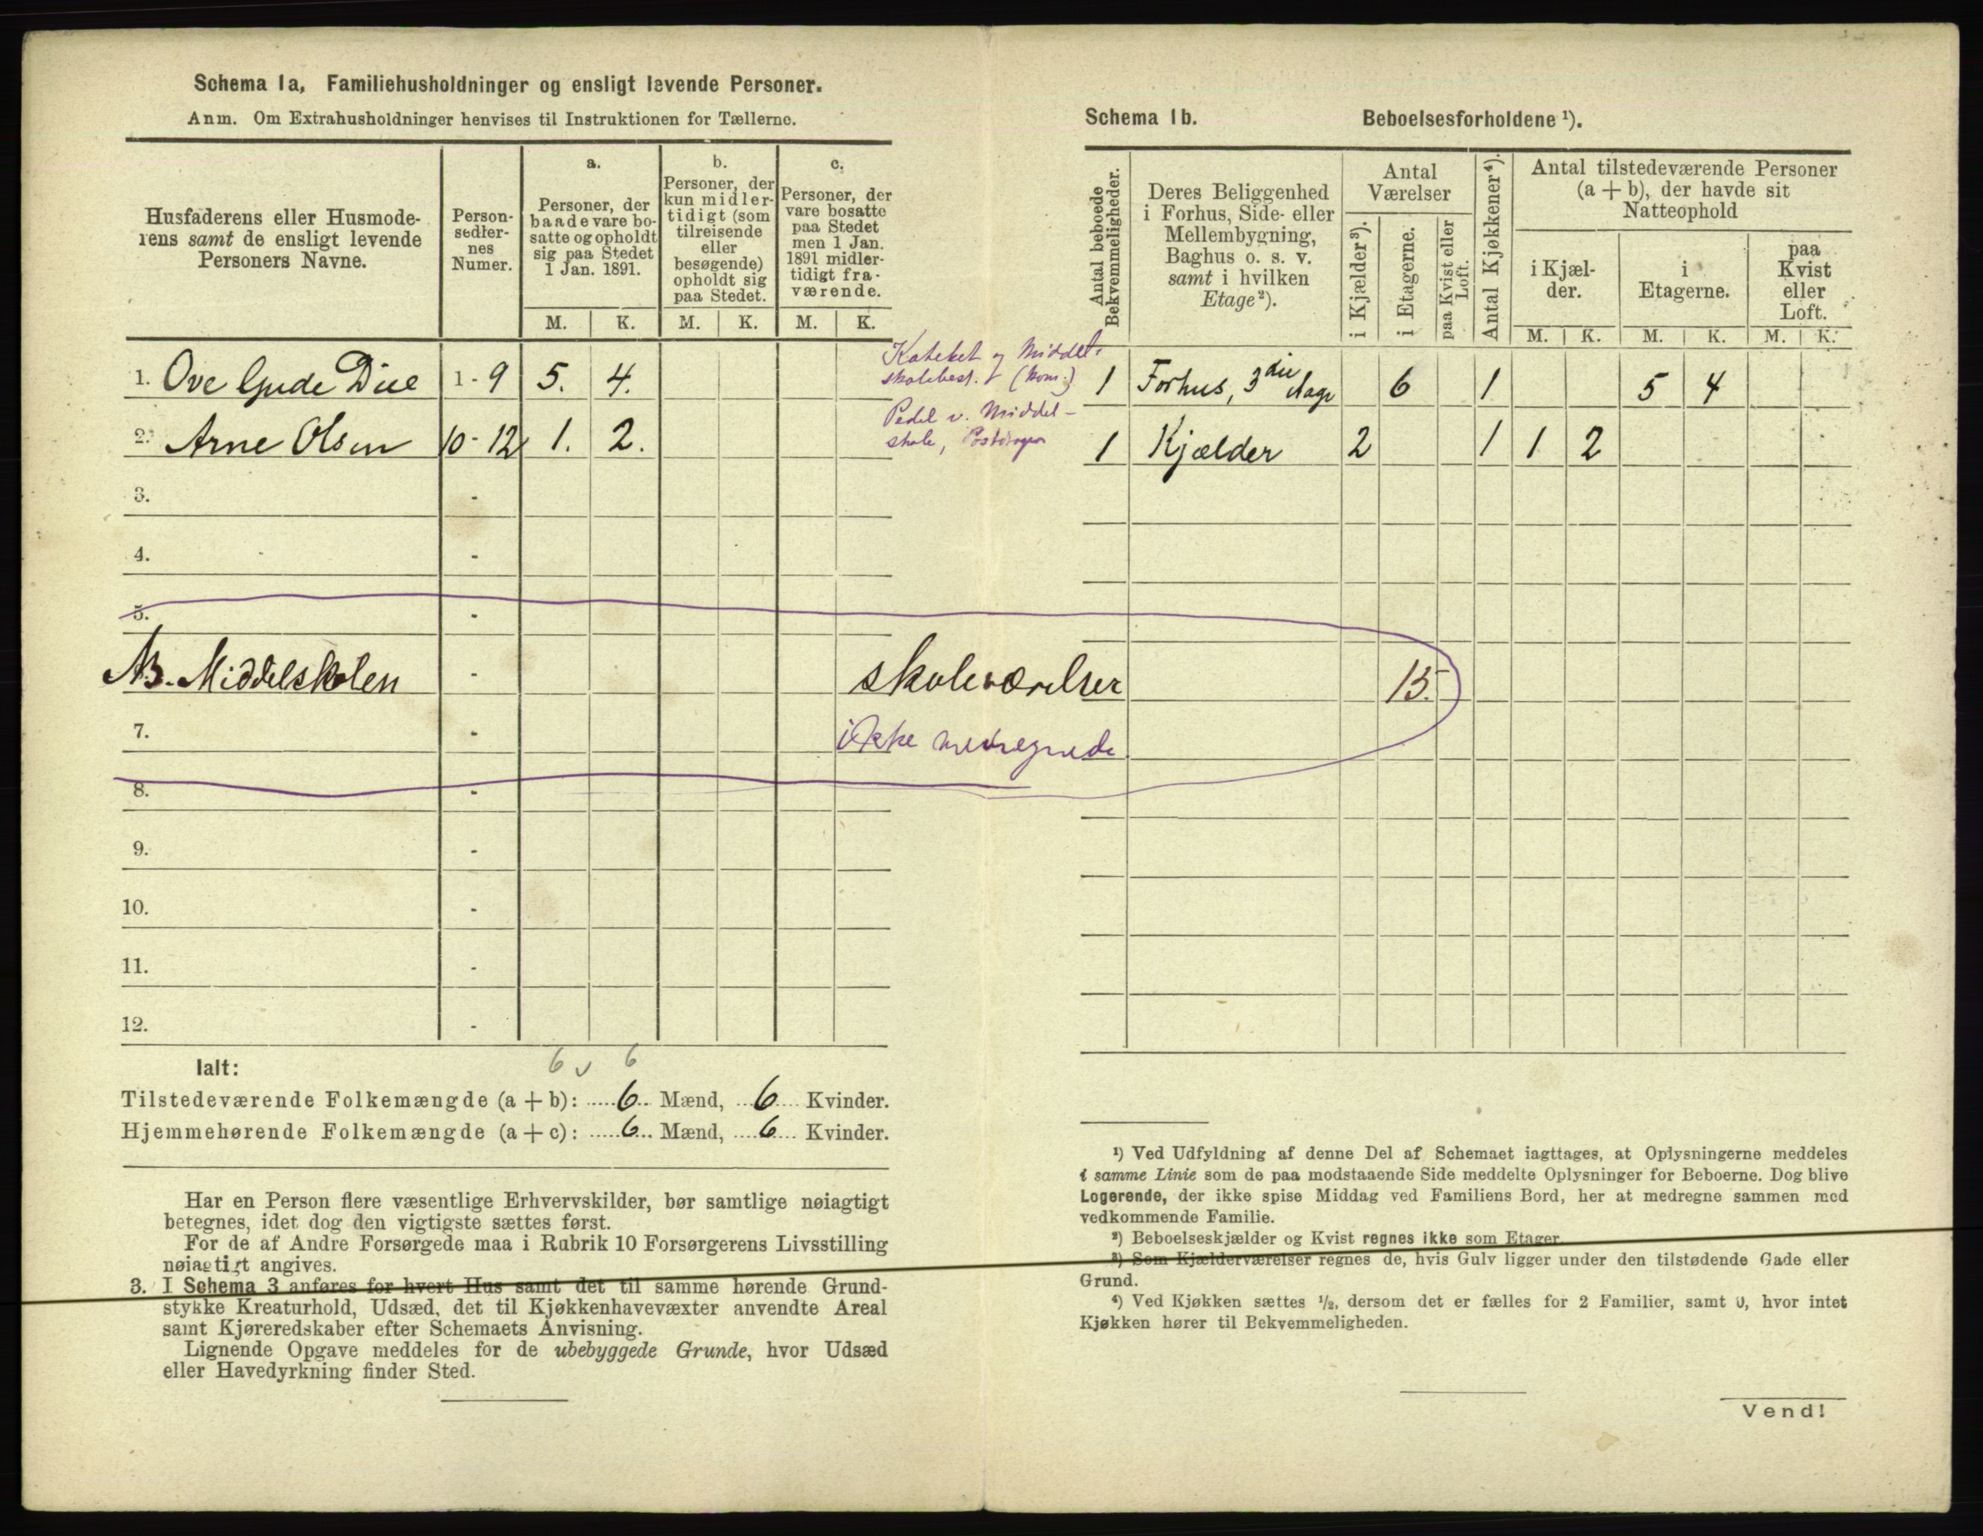 Schema 1a, Familiehusholdninger og ensligt levende Personer.
Anm. Om Extrahusholdninger henvises til Instruktionen for Tællerne.
Husfaderens eller Husmode-
rens samt de ensligt levende
Personers Navne.
Person-
sedler-
nes
Numer.
a.
Personer, der
baade vare bo-
satte og opholdt
sig paa Stedet
1 Jan. 1891.
b.
Personer, der
kun midler-
tidigt (som
tilreisende
eller
besøgende)
opholdt sig
paa Stedet.
c.
Personer, der
vare bosatte
paa Stedet
men 1 Jan.
1891 midler-
tidigt fra-
værende.
M. K. M. K. M. K.
1. Ove Gude Due 1-9 5. 4.
Kateket og Middel-
skolebest. (kom.)
2. Arne Olsen 10-12 1. 2.
Pedel v. Middel-
skole, Postdrager
3. -
4. -
5. -
NB. Middelskolen - skoleværelser 15.
7. - ikke medregnede
8. -
9. -
10. -
11. -
12. -
6 v 6
Ialt:
Tilstedeværende Folkemængde (a + b): 6 Mænd, 6 Kvinder.
Hjemmehørende Folkemængde (a + c): 6 Mænd, 6 Kvinder.
Har en Person flere væsentlige Erhvervskilder, bør samtlige nøiagtigt
betegnes, idet dog den vigtigste sættes først.
For de af Andre Forsørgede maa i Rubrik 10 Forsørgerens Livsstilling
nøiagtigt angives.
3. I Schema 3 anføres for hvert Hus samt det til samme hørende Grund-
stykke Kreaturhold, Udsæd, det til Kjøkkenhavevæxter anvendte Areal
samt Kjøreredskaber efter Schemaets Anvisning.
Lignende Opgave meddeles for de ubebyggede Grunde, hvor Udsæd
eller Havedyrkning finder Sted.
Schema 1b. Beboelsesforholdene ¹).
Antal beboede
Bekvemmeligheder.
Deres Beliggenhed
i Forhus, Side- eller
Mellembygning,
Baghus o. s. v.
samt i hvilken
Etage ²).
Antal
Værelser
i Kjælder ³).
i Etagerne.
paa Kvist eller
Loft.
Antal Kjøkkener ⁴).
Antal tilstedeværende Personer
(a + b), der havde sit
Natteophold
i Kjæl-
der.
i
Etagerne.
paa
Kvist
eller
Loft.
M. K. M. K. M. K.
1 Forhus, 3die Etage 6 1 5 4
1 Kjælder 2 1 1 2
¹) Ved Udfyldning af denne Del af Schemaet iagttages, at Oplysningerne meddeles
i samme Linie som de paa modstaaende Side meddelte Oplysninger for Beboerne. Dog blive
Logerende, der ikke spise Middag ved Familiens Bord, her at medregne sammen med
vedkommende Familie.
²) Beboelseskjælder og Kvist regnes ikke som Etager.
³) Som Kjælderværelser regnes de, hvis Gulv ligger under den tilstødende Gade eller
Grund.
⁴) Ved Kjøkken sættes ½, dersom det er fælles for 2 Familier, samt 0, hvor intet
Kjøkken hører til Bekvemmeligheden.
Vend!